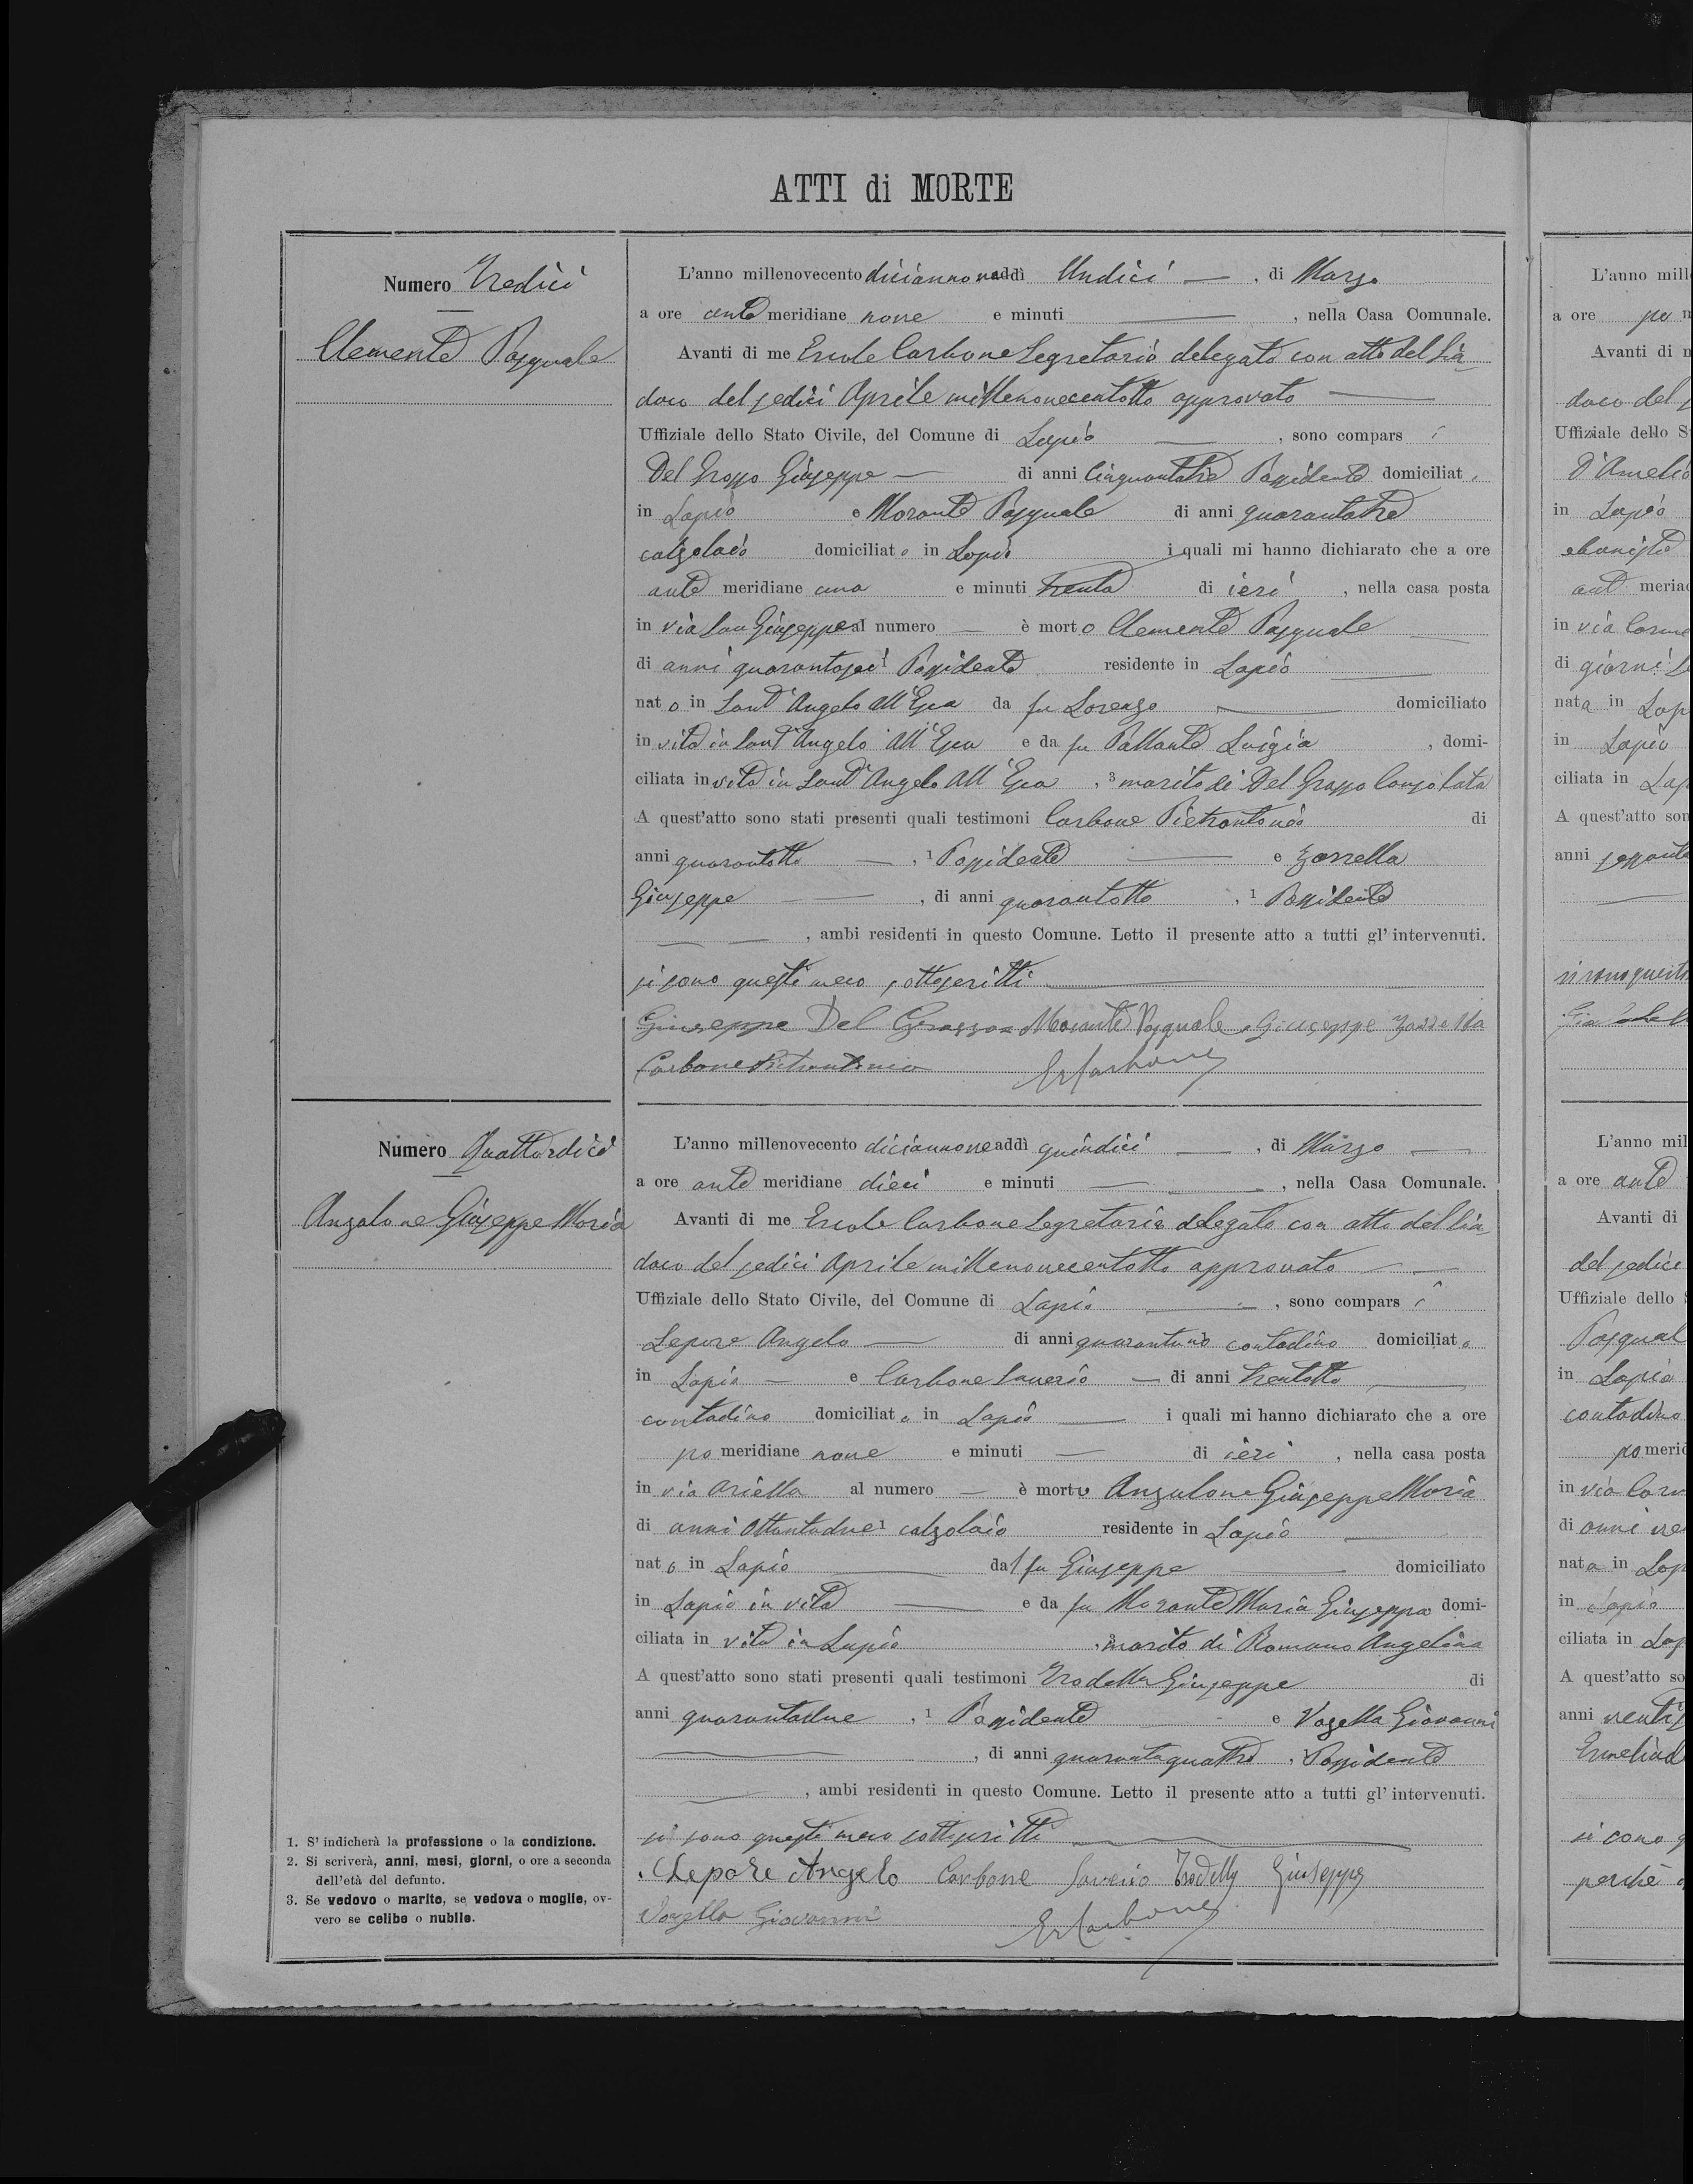 ATTI di MORTE
Numero Tredici
Clemente Pasquale
L'anno millenovecento diciannove addì Undici — , di Marzo
a ore ante meridiane nove e minuti — , nella Casa Comunale.
Avanti di me Ercole Carbone Segretario delegato con atto del Sin
daco del sedici Aprile millenovecentotto approvato —
Uffiziale dello Stato Civile, del Comune di Lapio — , sono compars i
Del Grosso Giuseppe — di anni cinquantatre Possidente domiciliat o
in Lapio e Morante Pasquale di anni quarantatre
calzolaio domiciliat o in Lapio i quali mi hanno dichiarato che a ore
ante meridiane una e minuti trenta di ieri , nella casa posta
in via San Giuseppe al numero — è mort o Clemente Pasquale —
di anni quarantasei 1 Possidente residente in Lapio —
nat o in Sant'Angelo All'Esca da fu Lorenzo — domiciliato
in vita in Sant'Angelo All'Esca e da fu Pallante Luigia , domi-
ciliata in vita in Sant'Angelo All'Esca , 3 marito di Del Grosso Consolata
A quest'atto sono stati presenti quali testimoni Carbone Pietrantonio di
anni quarantotto — , 1 Possidente — e Zarrella
Giuseppe — , di anni quarantotto , 1 Possidente
— — , ambi residenti in questo Comune. Letto il presente atto a tutti gl'intervenuti.
si sono questi meco sottoscritti —
Giuseppe Del Grosso = Morante Pasquale = Giuseppe Zarrella
Carbone Pietrantonio Er Carbone
Numero Quattordici
Anzalone Giuseppe Maria
L'anno millenovecento diciannove addì quindici — , di Marzo —
a ore ante meridiane dieci e minuti — , nella Casa Comunale.
Avanti di me Ercole Carbone Segretario delegato con atto del Sin
daco del sedici Aprile millenovecentotto approvato — —
Uffiziale dello Stato Civile, del Comune di Lapio — , sono compars i
Lepore Angelo — di anni quarantuno contadino domiciliat o
in Lapio — e Carbone Saverio — di anni trentotto —
contadino domiciliat o in Lapio — i quali mi hanno dichiarato che a ore
po meridiane nove e minuti — di ieri , nella casa posta
in via Ariella al numero — è mort o Anzalone Giuseppe Maria
di anni Ottantadue 1 calzolaio residente in Lapio —
nat o in Lapio — da fu Giuseppe — domiciliato
in Lapio in vita — e da fu Morante Maria Giuseppa domi-
ciliata in vita in Lapio , 3 marito di Romano Angelina
A quest'atto sono stati presenti quali testimoni Trodella Giuseppe di
anni quarantadue , 1 Possidente — e Vozella Giovanni
— , di anni quarantaquattro , 1 Possidente
— , ambi residenti in questo Comune. Letto il presente atto a tutti gl'intervenuti.
si sono questi meco sottoscritti —
Lepore Angelo Carbone Saverio Trodella Giuseppe
Vozella Giovanni Er Carbone
1. S'indicherà la professione o la condizione.
2. Si scriverà, anni, mesi, giorni, o ore a seconda
dell'età del defunto.
3. Se vedovo o marito, se vedova o moglie, ov-
vero se celibe o nubile.
L'anno mill
a ore po m
Avanti di m
daco del
Uffiziale dello S
D'Amelio
in Lapio
ebanista
ant meria
in via Carm
di giorni
nata in Lap
in Lapio
ciliata in Lap
A quest'atto son
anni sessanta
si sono questi
L'anno mil
a ore ante
Avanti di
del sedici
Uffiziale dello
Pasqual
in Lapio
contadino
po merid
in via Carm
di anni ve
nata in Lap
in Lapio
ciliata in Lap
A quest'atto so
anni ventis
Ermelind
si sono q
perchè